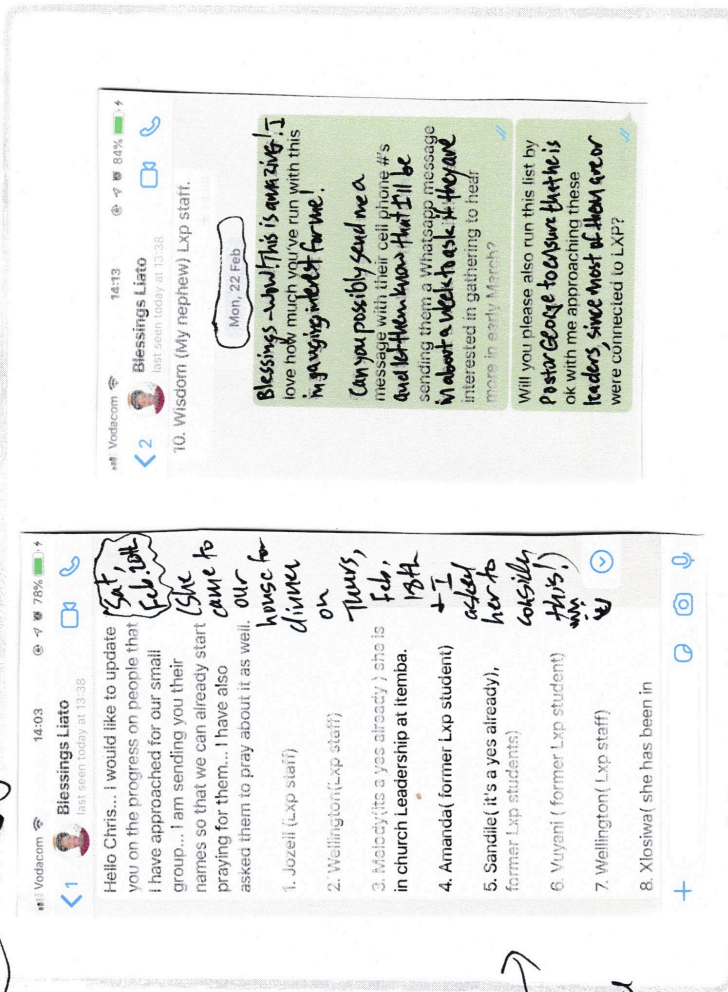 Vodacom
14:03
78%
1
Blessings Liato
last seen today at 13:38
Hello Chris... I would like to update
you on the progress on people that
I have approached for our small
group... I am sending you their
names so that we can already start
praying for them... I have also
asked them to pray about it as well.
1. Jozell (Lxp staff)
2. Wellington(Lxp staff)
3. Melody(its a yes already ) she is
in church Leadership at itemba.
4. Amanda( former Lxp student)
5. Sandile( it's a yes already),
former Lxp students)
6. Vuyani ( former Lxp student)
7. Wellington( Lxp staff)
8. Xlosiwa( she has been in
Sat,
Feb. 20th
(She
came to
our
house for
dinner
on
Thurs,
Feb.
18th
+ I
asked
her to
consider
this!)
Vodacom
14:13
84%
2
Blessings Liato
last seen today at 13:38
10. Wisdom (My nephew) Lxp staff.
Mon, 22 Feb
Blessings - wow! This is amazing! I
love how much you've run with this
in gauging interest for me!
Can you possibly send me a
message with their cell phone #'s
and let them know that I'll be
sending them a Whatsapp message
in about a week to ask if they are
interested in gathering to hear
more in early March?
Will you please also run this list by
Pastor George to ensure that he is
ok with me approaching these
leaders, since most of them are or
were connected to LXP?